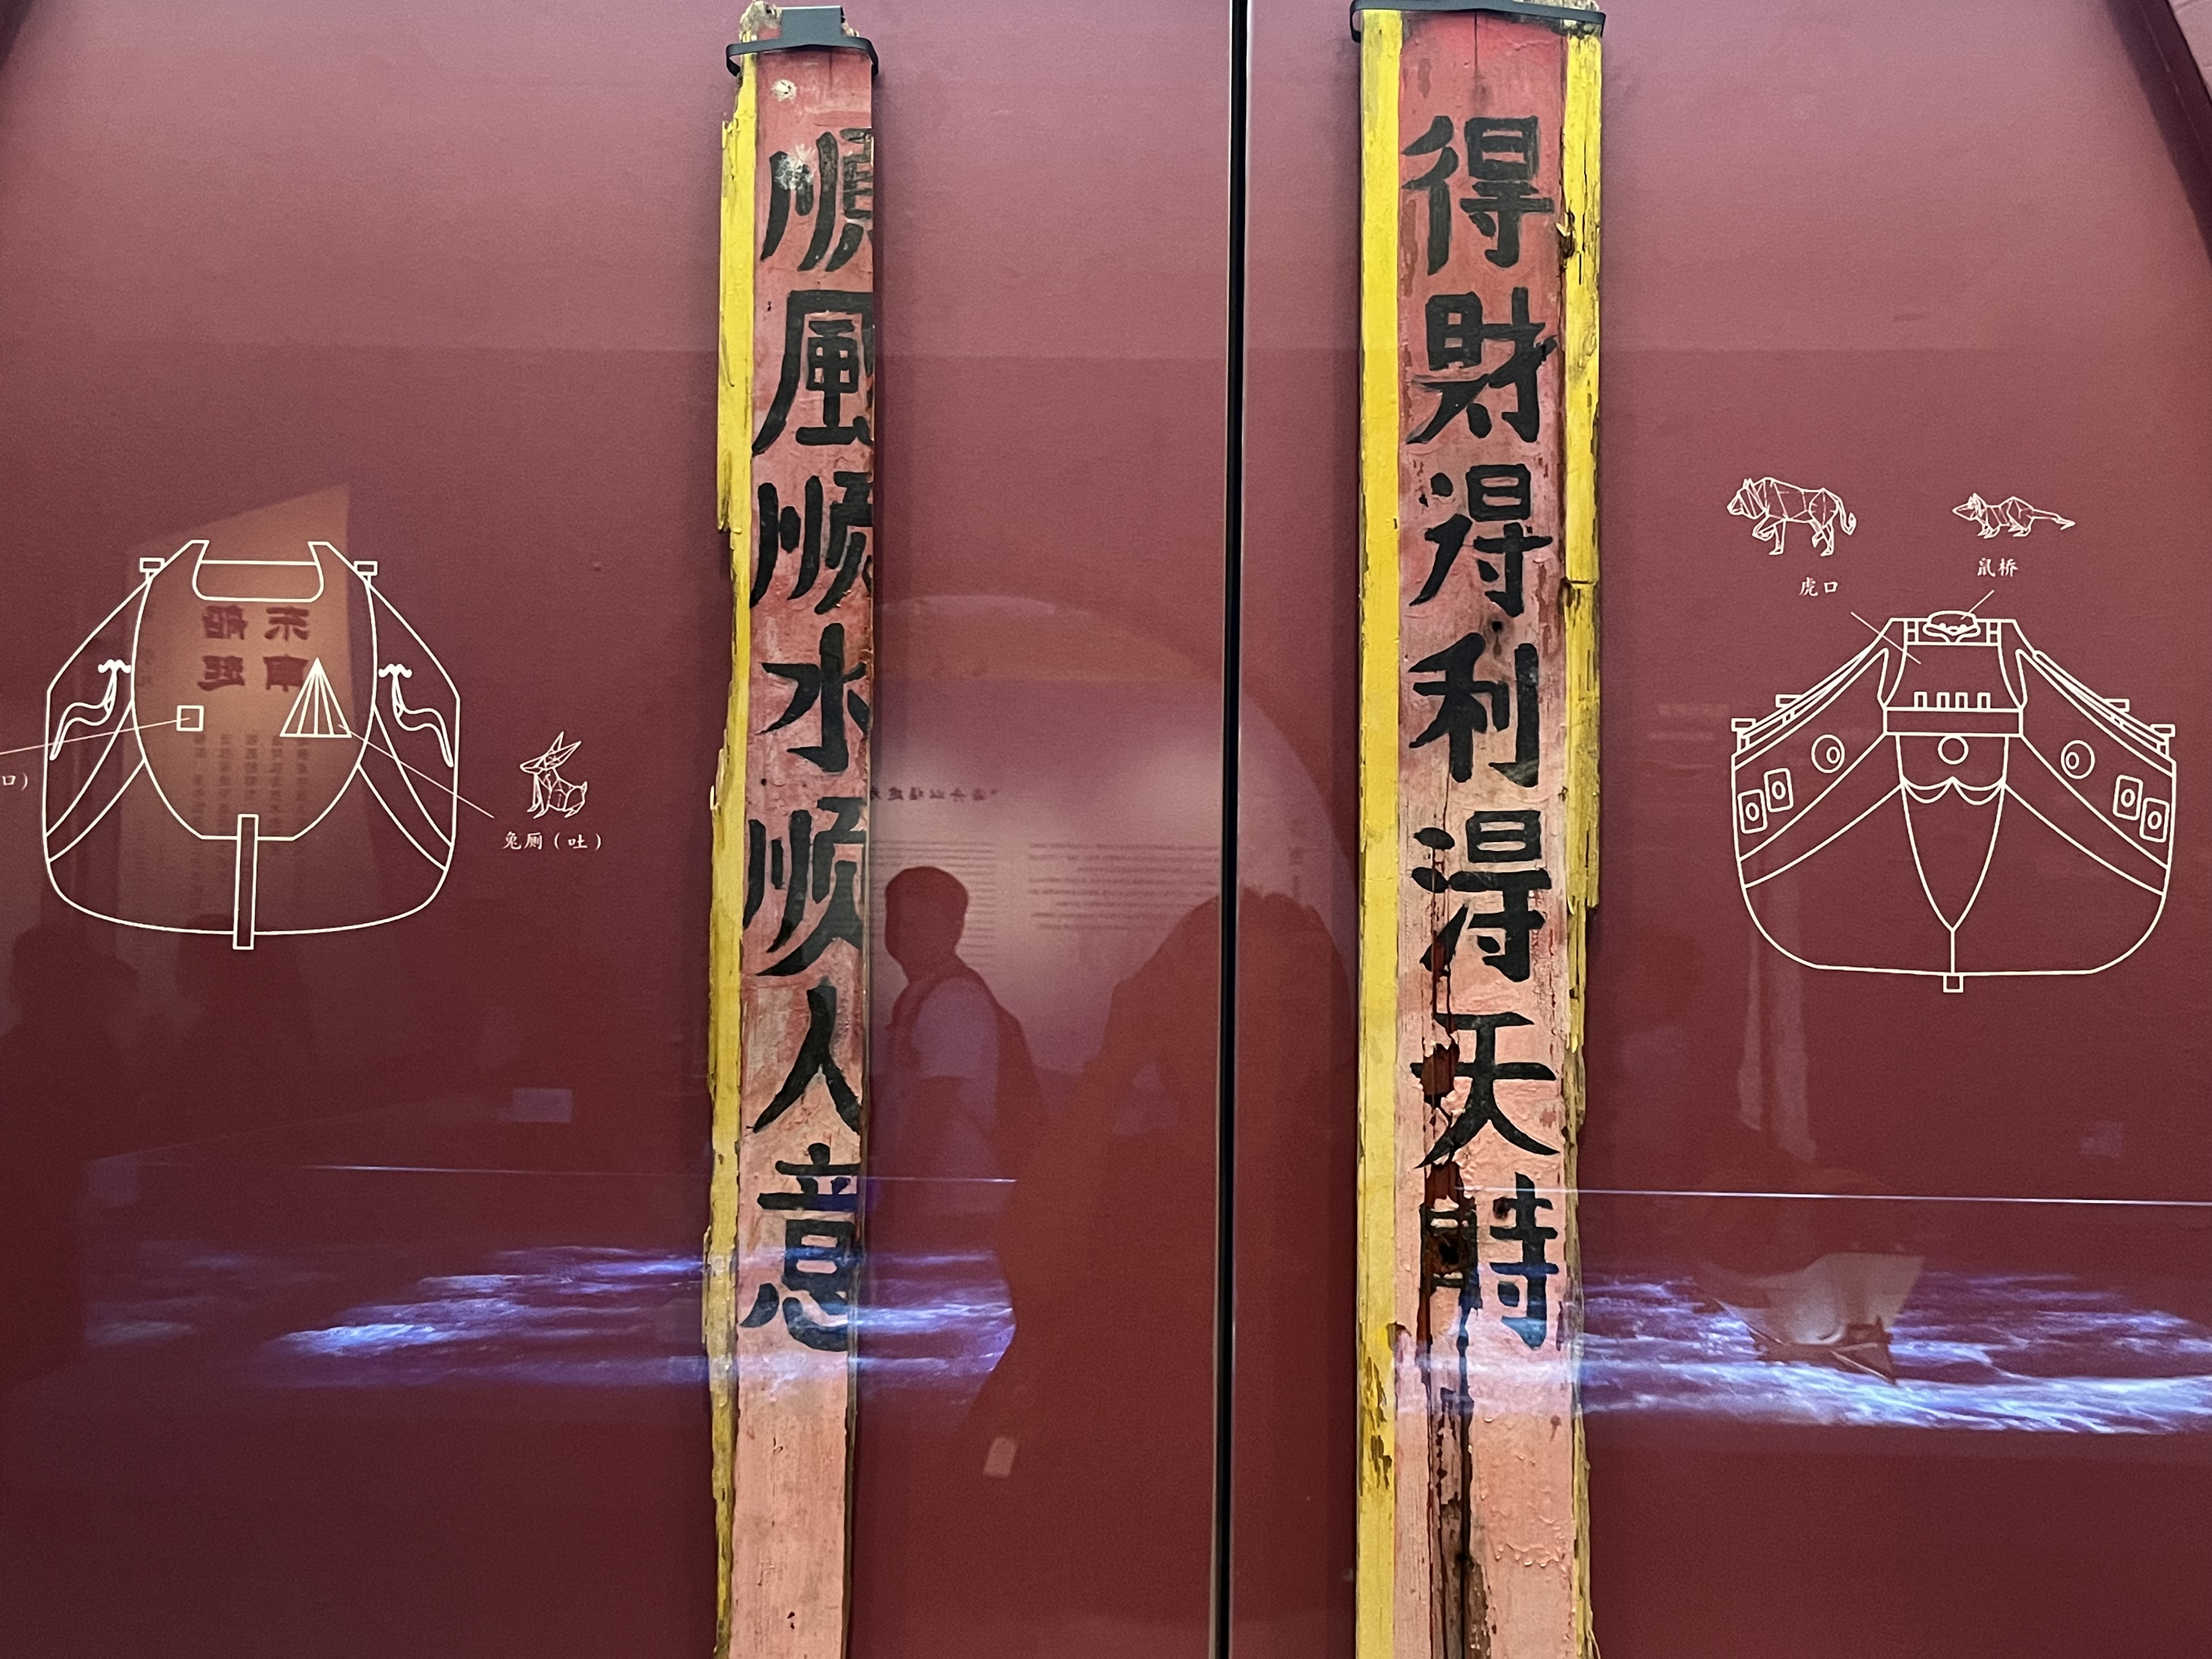 得財得利得天時
順風順水順人意
虎口
鼠桥
兔厕（吐）
口）